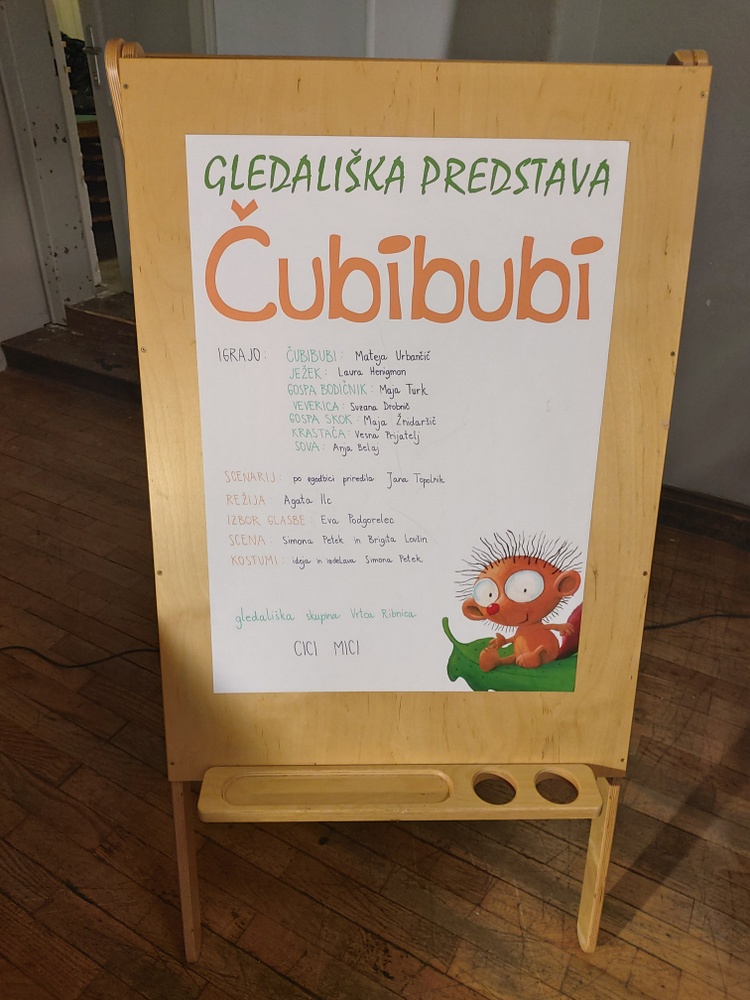 GLEDALIŠKA PREDSTAVA
Čubibubi
IGRAJO: ČUBIBUBI: Mateja Urbančič
JEŽEK: Laura Henigman
GOSPA BODIČNIK: Maja Turk
VEVERICA: Suzana Drobnič
GOSPA SKOK: Maja Žnidaršič
KRASTAČA: Vesna Prijatelj
SOVA: Anja Belaj
SCENARIJ: po zgodbici priredila Jana Topolnik
REŽIJA: Agata Ilc
IZBOR GLASBE: Eva Podgorelec
SCENA: Simona Petek in Brigita Lovšin
KOSTUMI: ideja in izdelava Simona Petek
gledališka skupina Vrtca Ribnica
CICI MICI